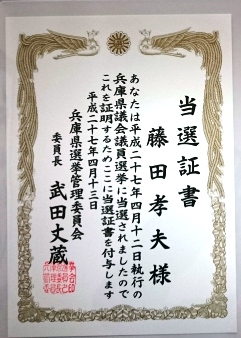 当選証書
藤田孝夫様
あなたは平成二十七年四月十二日執行の
兵庫県議会議員選挙に当選されましたので
これを証明するためここに当選証書を付与します
平成二十七年四月十三日
兵庫県選挙管理委員会
委員長 武田丈蔵